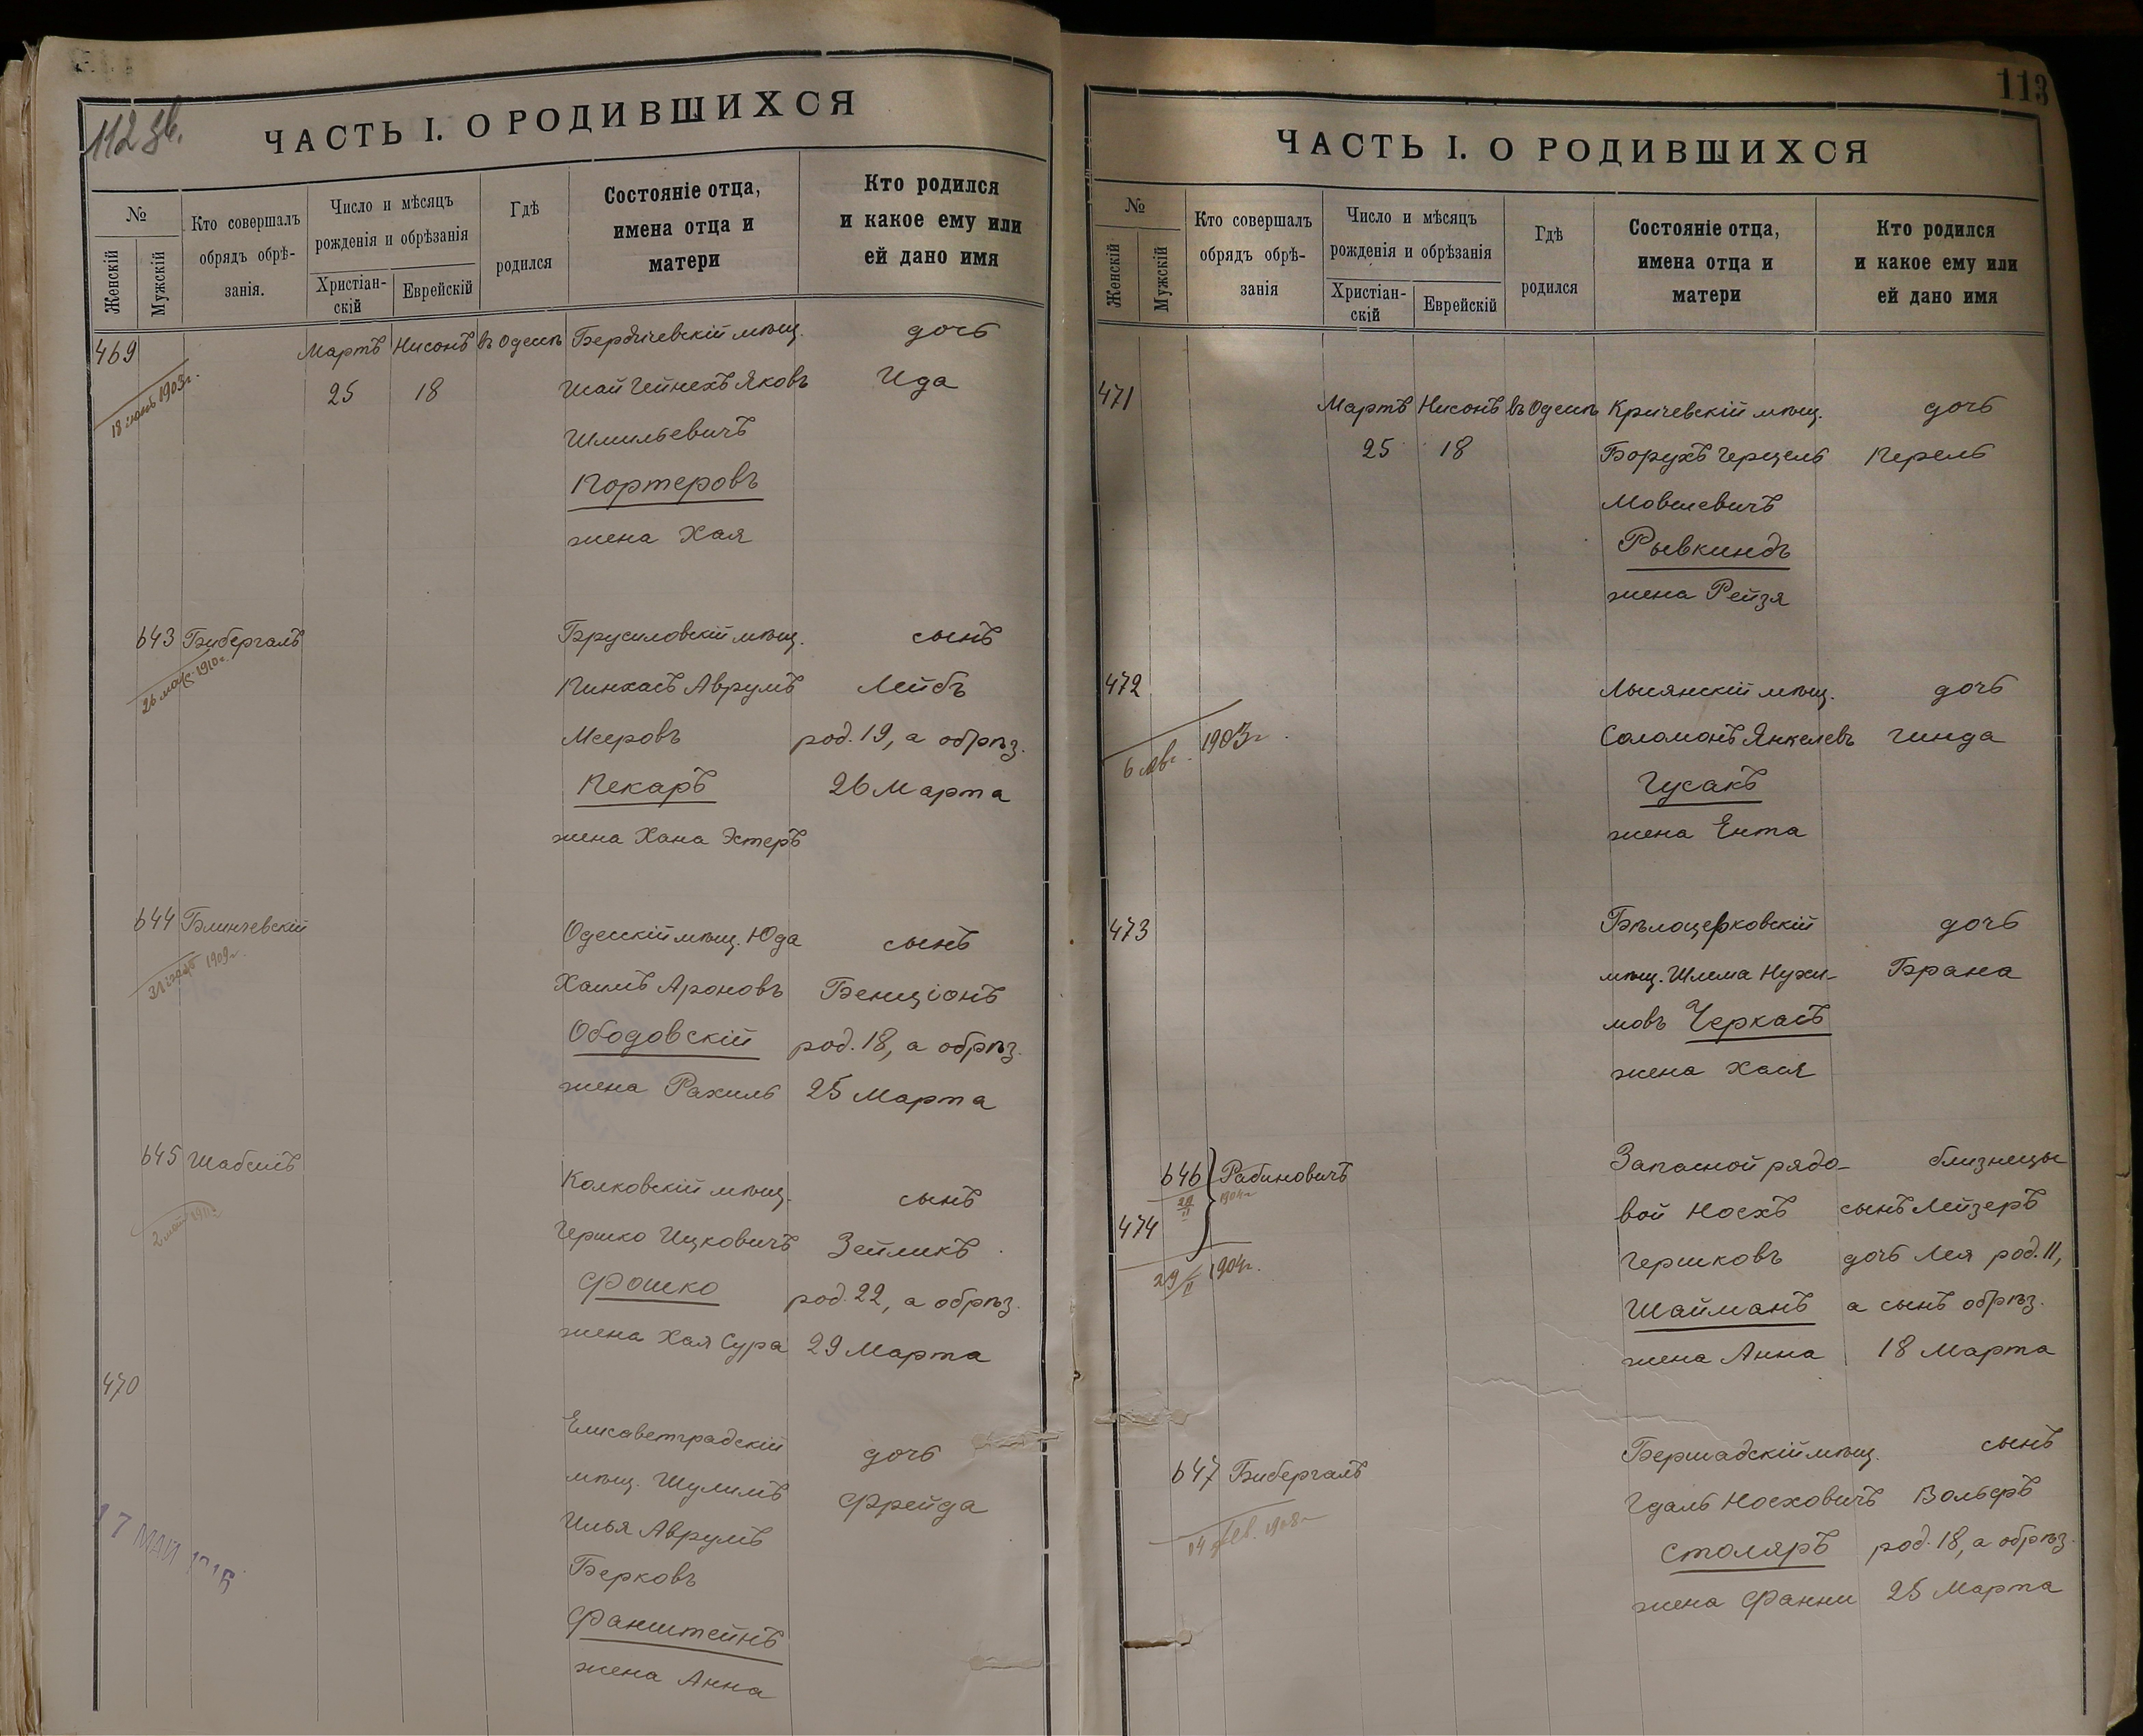 112 зв.
ЧАСТЬ I. О РОДИВШИХСЯ
№
Женскій
Мужскій
Кто совершалъ
обрядъ обрѣ-
занія.
Число и мѣсяцъ
рожденія и обрѣзанія
Христіан-
скій
Еврейскій
Гдѣ
родился
Состояніе отца,
имена отца и
матери
Кто родился
и какое ему или
ей дано имя
469 Мартъ Нисонъ въ Одессѣ Бердичевскій мѣщ. дочь
18 іюнь 1903г. 25 18 Шай Гейнехъ Яковъ Ида
Шмильевичъ
Портеровъ
жена Хая
643 Бибергалъ Брусиловскій мѣщ. сынъ
26 1910г. Пинхасъ Аврумъ Лейбъ
Мееровъ род. 19, а обрѣз.
Пекаръ 26 Марта
жена Хана Эстеръ
644 Блинчевскій Одесскій мѣщ. Юда сынъ
31 1909г. Хаимъ Ароновъ Бенціонъ
Ободовскій род. 18, а обрѣз.
жена Рахиль 25 Марта
645 Шабсисъ Колковскій мѣщ. сынъ
Гершко Ицковичъ Зейликъ
Фошко род. 22, а обрѣз.
жена Хая Сура 29 Марта
470
Елисаветградскій дочь
мѣщ. Шулимъ Фрейда
Илья Аврумъ
17 МАЯ
Берковъ
Фанштейнъ
жена Анна
113
ЧАСТЬ I. О РОДИВШИХСЯ
№
Женскій
Мужскій
Кто совершалъ
обрядъ обрѣ-
занія
Число и мѣсяцъ
рожденія и обрѣзанія
Христіан-
скій
Еврейскій
Гдѣ
родился
Состояніе отца,
имена отца и
матери
Кто родился
и какое ему или
ей дано имя
471 Мартъ Нисонъ въ Одессѣ Кричевскій мѣщ. дочь
25 18 Борухъ Герцель Перель
Мовшевичъ
Рывкиндъ
жена Рейзя
472 Лысянскій мѣщ. дочь
6 1903г. Соломонъ Янкелевъ Гинда
Гусакъ
жена Ента
473 Бѣлоцерковскій дочь
мѣщ. Шлема Нухи- Брана
мовъ Черкасъ
жена Хася
646 Рабиновичъ Запасной рядо- близнецы
29/II 1904г.
474 вой Носхъ сынъ Лейзеръ
29/II 1904г. Гершковъ дочь Лея род. 11,
Шайманъ а сынъ обрѣз.
жена Анна 18 Марта
647 Бибергалъ Бершадскій мѣщ. сынъ
Гдаль Носховичъ Вольфъ
Столяръ род. 18, а обрѣз.
жена Фанни 25 Марта